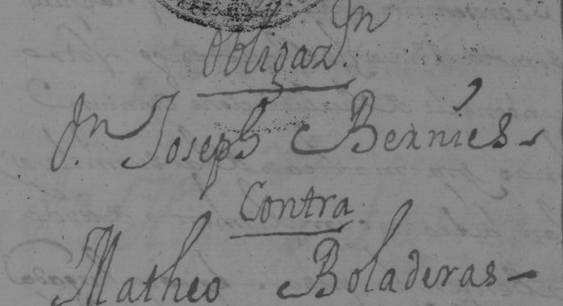 Obligaz.on
D.n Joseph Bernies
Contra
Matheo Boladeras